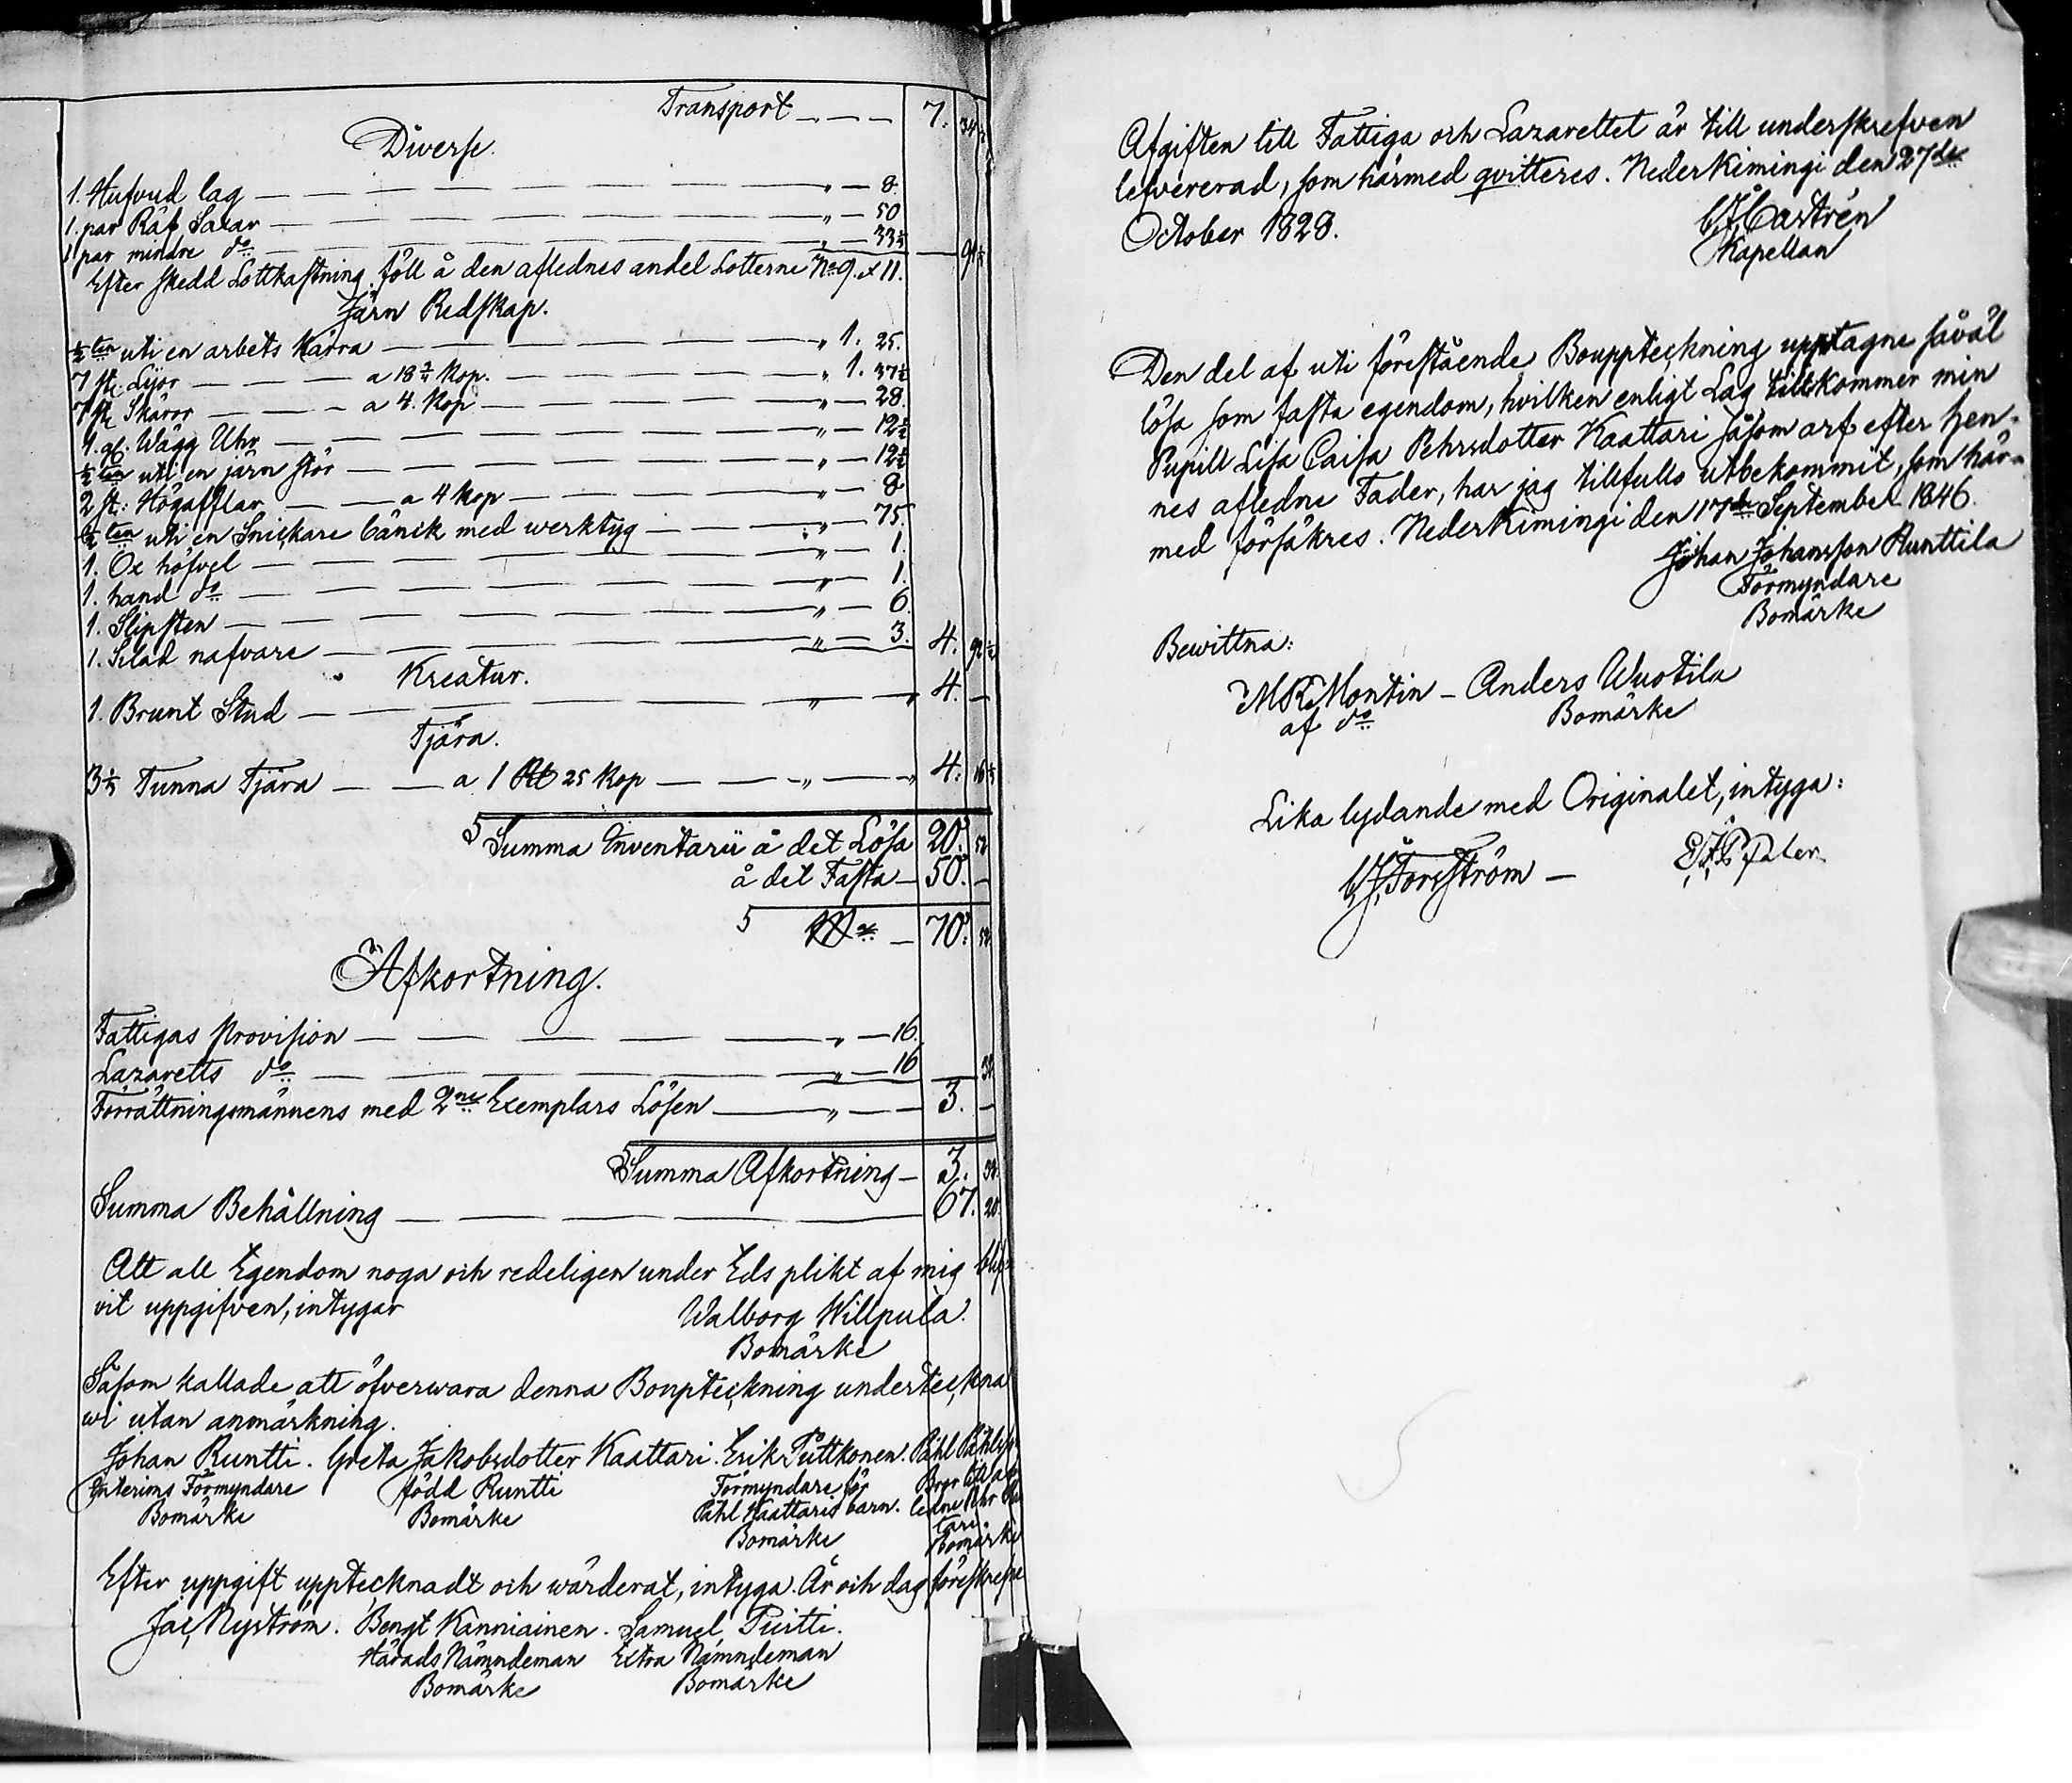 Transport — — — 7. 34
Diverse.
1. Hufvud lag — — — " — 8
1. par Räf Saxar — — — " — 50
1. par mindre do — — — " — 33⅓ — 91⅓
Efter skedd Lottkastning föll å den aflednes andel Lotterne No 9. & 11.
Järn Redskap.
½ten uti en arbets Kärra — — — " 1. 25.
7 st. Lijor — — — a 18¾ Kop. — — — " 1. 37½
7 st Skäror — — — a 4. Kop — — — " — 28.
1. gl. Wägg Uhr — — — " — 12½
½ten uti en järn stör — — — " — 12½
2 st: Högafflar — — a 4 Kop — — — " — 8
½ten uti en Snickare bänck med werktyg — — " — 75.
1. Ox höfvel — — — " — 1.
1. hand do — — — " — 1.
1. Slipsten — — — " — 6.
1. Selad nafvare — — — " — 3. 4. 92½
Kreatur.
1. Brunt Stud — — — " " 4. —
Tjära.
3⅓ Tunna Tjära — — a 1 Rb 25 Kop — — — " — " 4: 16⅔
S Summa Inventarii å det Lösa 20. 52
å det Fasta — 50. —
S — 70: 52
Afkortning.
Fattigas Provision — — — " — 16.
Lazaretts do — — — " — 16 — 32.
Förrättningsmännens med 2ne Exemplars Lösen — " — 3. —
Summa Afkortning — 3. 32.
Summa Behållning — — — 67. 20.
Att all Egendom noga och redeligen under Eds plikt af mig blif-
vit uppgifven, intygar Walborg Willpula.
Bomärke
Såsom kallade att öfverwara denna Boupteckning underteckna
wi utan anmärkning.
Johan Runtti. Greta Jakobsdotter Kaattari. Erik Puttkonen. Påhl
Interims Förmyndare född Runtti Förmyndare för Bror till af-
Bomärke Bomärke Påhl Kaattaris barn. ledne Pehr
Bomärke tari.
Bomärke
Efter uppgift upptecknadt och wärderat, intyga. År och dag föreskrefne
Jac. Nyström. Bengt Kanniainen. Samuel Puitti.
Härads Nämndeman Extra Nämndeman
Bomärke Bomärke
Afgiften till Fattiga och Lazarettet är till underskrefven
lefvererad, som härmed qvitteres. Neder Kimingi den 27de
October 1828. Castrén
Kapellan
Den del af uti förestående Bouppteckning upptagne såväl
lösa som fasta egendom, hvilken enligt Lag tillkommer min
Pupill Lisa Caisa Pehrsdotter Kaattari såsom arf efter hen-
nes afledne Fader, har jag tillfulls utbekommit, som här-
med försäkres. Neder Kimingi den 17de September 1846.
Johan Johansson Runttila
Förmyndare
Bomärke
Bewittna:
M R Montin — Anders Wuotila
af do Bomärke
Lika lydande med Originalet, intyga:
Forsström —